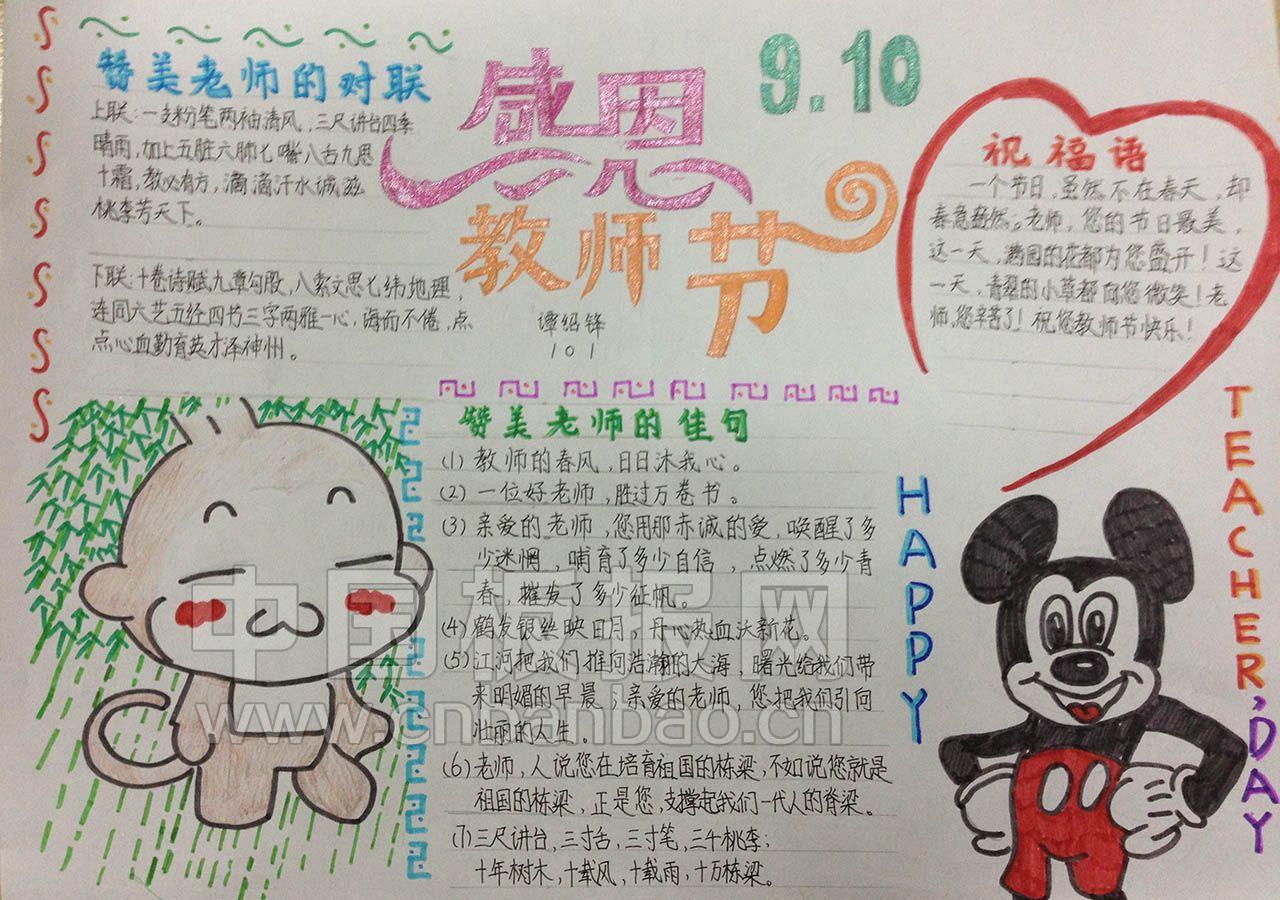 赞美老师的对联
上联:一支粉笔两袖清风,三尺讲台四季
晴雨,加上五脏六腑七嘴八舌九思
十霜,教必有方,滴滴汗水诚滋
桃李芳天下。
下联:十卷诗赋九章勾股,八索文思七纬地理,
连同六艺五经四书三字两雅一心,诲而不倦,点
点心血勤育英才泽神州。
感恩
教师节
9.10
谭绍锋
101
祝福语
一个节日,虽然不在春天,却
春意盎然。老师,您的节日最美,
这一天,满园的花都为您盛开!这
一天,青翠的小草都向您微笑!老
师,您辛苦了!祝您教师节快乐!
赞美老师的佳句
(1) 教师的春风,日日沐我心。
(2) 一位好老师,胜过万卷书。
(3) 亲爱的老师,您用那赤诚的爱,唤醒了多
少迷惘,哺育了多少自信,点燃了多少青
春,摧发了多少征帆。
(4) 鹤发银丝映日月,丹心热血沃新花。
(5) 江河把我们推向浩瀚的大海,曙光给我们带
来明媚的早晨;亲爱的老师,您把我们引向
壮丽的人生。
(6) 老师,人说您在培育祖国的栋梁,不如说您就是
祖国的栋梁,正是您,支撑起我们一代人的脊梁。
(7) 三尺讲台,三寸舌,三寸笔,三千桃李;
十年树木,十载风,十载雨,十万栋梁。
HAPPY
TEACHER,DAY
中国板报网
www.cnbanbao.cn